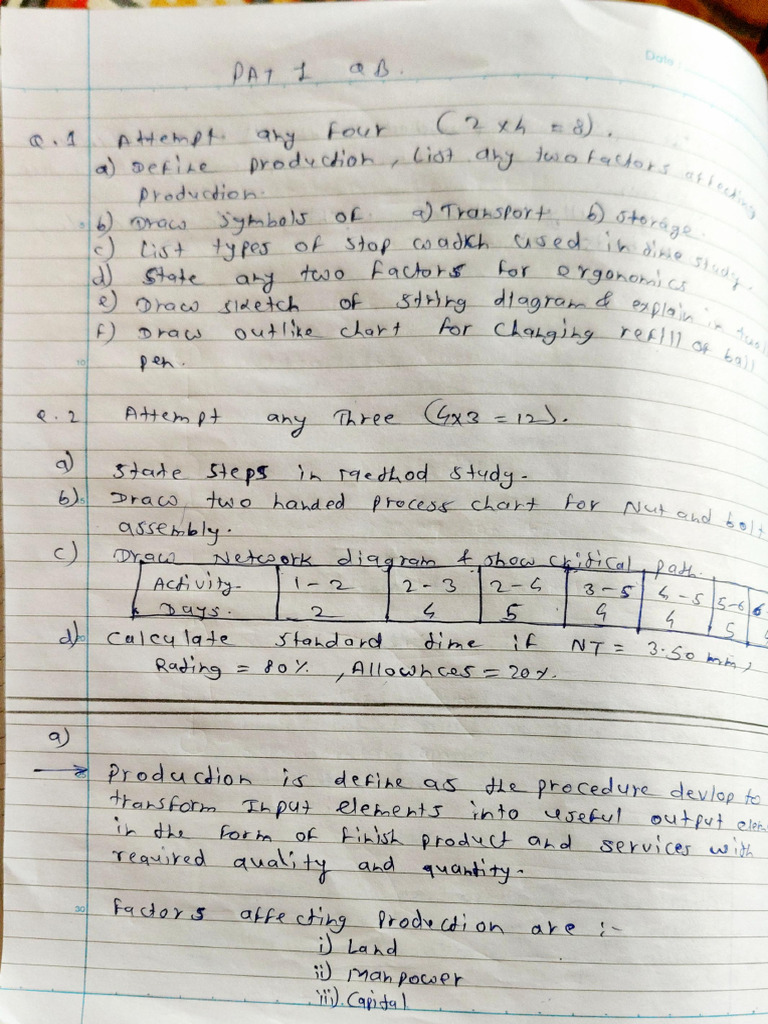 Date
PAT 1 QB.
Q.1 Attempt any four (2x4 = 8).
a) Define production, List any two factors affecting
production.
b) Draw symbols of a) Transport b) storage.
c) List types of stop watch used in time study.
d) State any two factors for ergonomics
e) Draw sketch of string diagram & explain in
f) Draw outline chart for changing refill of ball
10 pen.
Q.2 Attempt any Three (4x3 = 12).
a) State steps in method study.
b) Draw two handed process chart for Nut and bolt
assembly.
c) Draw Network diagram & show critical path.
Activity. 1-2 2-3 2-4 3-5 4-5 5-6 6
Days. 2 4 5 4 4 5
d) Calculate standard time if NT = 3.50 mm,
Rating = 80%, Allownces = 20%.
a)
→ Production is define as the procedure devlop to
transform Input elements into useful output elem
in the form of finish product and services with
required quality and quantity.
30 factors affecting Production are :-
i) Land
ii) Manpower
iii) Capital